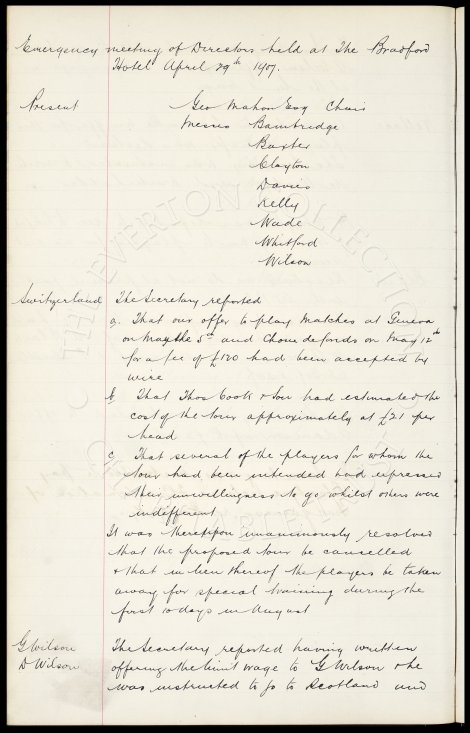 Emergency meeting of Directors held at The Bradford
Hotel April 29th 1907.
Present Geo Mahon Esq Chair
Messrs Bainbridge
Baxter
Clayton
Davies
Kelly
Wade
Whitford
Wilson
Switzerland The Secretary reported
a. That our offer to play matches at Geneva
on May the 5th and Chaux de fonds on May 12th
for a fee of £120 had been accepted by
wire
b That Thos Cook & Son had estimated the
cost of the tour approximately at £21 per
head
c That several of the players for whom the
tour had been intended had expressed
their unwillingness to go whilst others were
indifferent
It was thereupon unanimously resolved
that the proposed tour be cancelled
& that in lieu thereof the players be taken
away for special training during the
first 10 days in August
G Wilson The Secretary reported having written
D Wilson offering the limit wage to G Wilson & he
was instructed to go to Scotland and
THE EVERTON COLLECTION